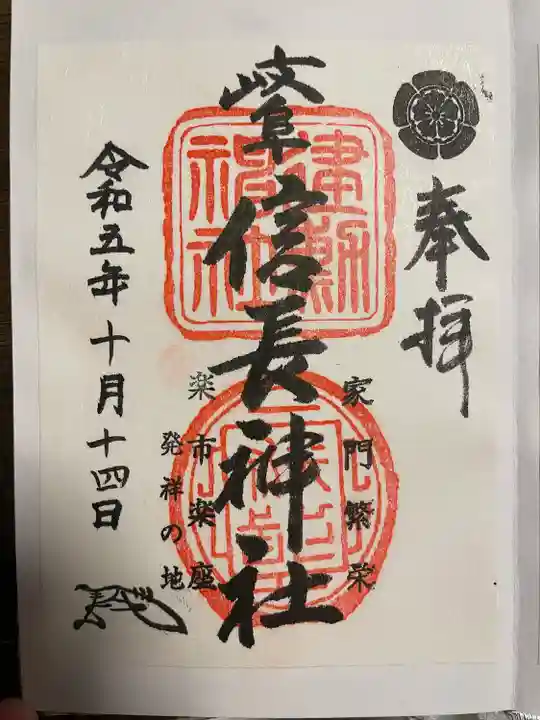 奉拝
家門繁栄
岐阜信長神社
建勲神社
楽市楽座
発祥の地
令和五年十月十四日